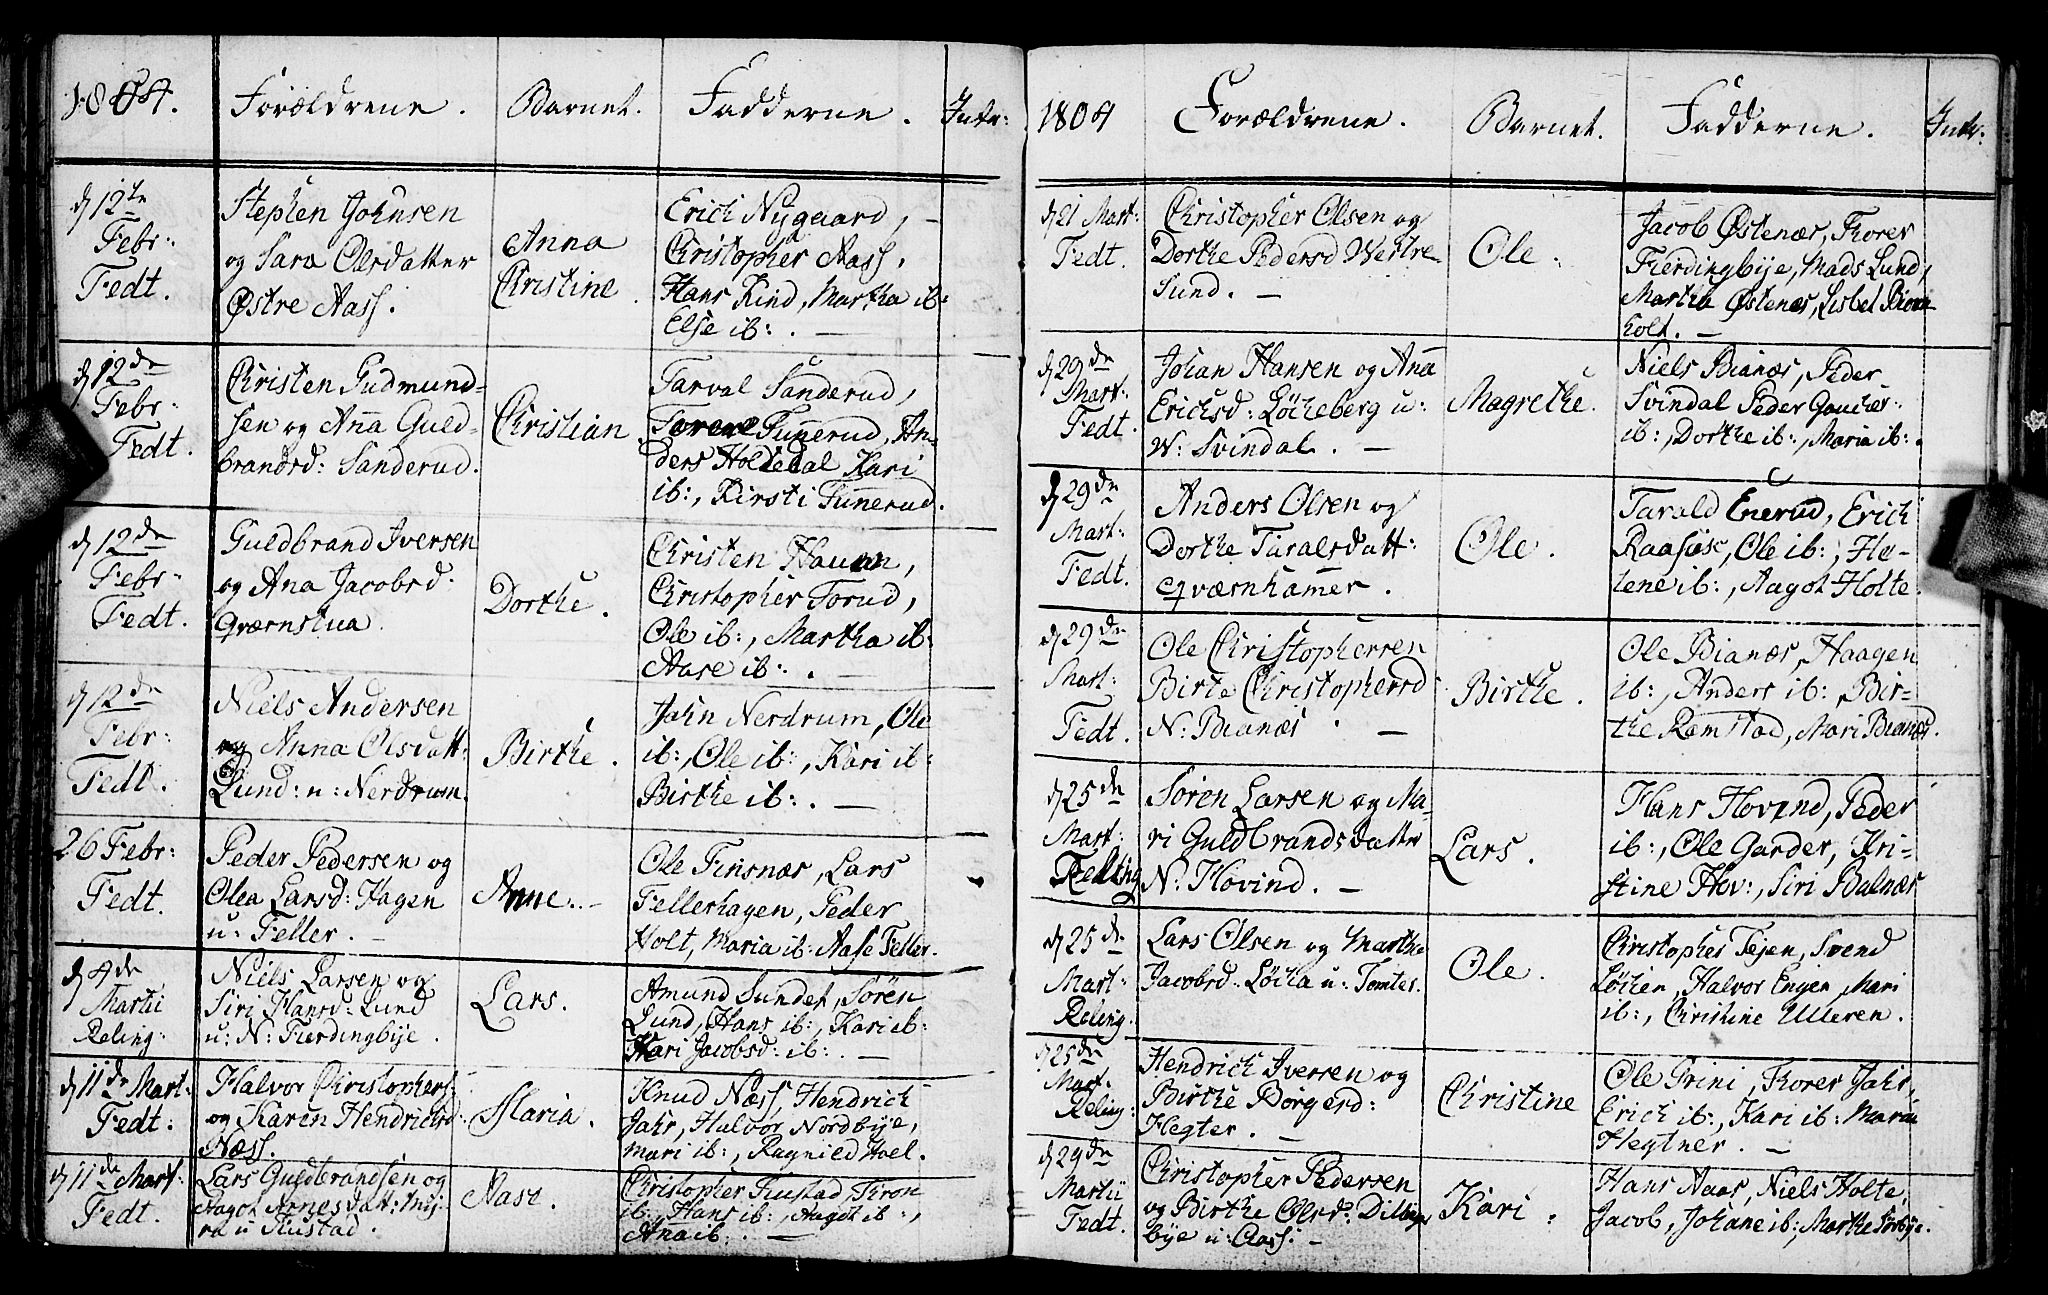 1804. Forældrene. Barnet. Fadderne. Intr:
d 12te Febr: Fedt.
Stephen Johnsen
og Sara Olsdatter
Østre Aass.
Anna
Christine.
Erich Nygaard,
Christopher Aass,
Hans Kind, Martha ib:
Else ib:. —
d 12de Febr: Fedt.
Christen Gudmund-
sen og Anna Guld-
brandsd: Sanderud.
Christian
Tarval Sanderud,
Funnerud, An-
ders Holdedal Kari
ib:, Kirsti Funnerud.
d 12de Febr: Fedt.
Guldbrand Iversen
og Ana Jacobsd:
Qværnstua.
Dorthe.
Christen
Christopher Torud,
Ole ib:, Martha ib:
Aase ib:. —
d 12de Febr: Fedt.
Niels Andersen
og Anna Olsdatt:
Lund: u: Nerdrum.
Birthe.
John Nerdrum, Ole
ib:, Ole ib:, Kari ib:
Birthe ib:. —
26 Febr: Fedt.
Peder Pedersen og
Olea Larsd: Hagen
u: Feller. —
Anne. —
Ole Finsnæs, Lars
Fellerhagen, Peder
Holt, Maria ib: Aase Feller.
d 4de Martii Reling:
Niels Larsen og
Siri Hansd: Lund
u: N: Fierdingbÿe.
Lars.
Amund Sundet, Sören
Lund, Hans ib:, Kari ib:
Kari Jacobsd: ib:. —
d 11de Mart: Fedt:
Halvor Christophers:
og Karen Hendrichsd:
Næss.
Maria.
Knud Næss, Hendrich
Jahr, Halvor Nordbÿe,
Mari ib:, Ragnild Hoel.
d 11de Mart: Fedt.
Lars Guldbrandsen og
Aagot Arnesdatt: Mÿ-
ra u Rustad.
Aase.
Christopher Rustad, Tron
ib:, Hans ib:, Aagot ib:,
Ana ib:. —
1804 Forældrene. Barnet. Fadderne. Intr:
d 21 Mart: Fedt.
Christopher Olsen og
Dorthe Pedersd Westre
Sund. —
Ole.
Jacob Østenæs, Torer
Fierdingbÿe, Mads Lund,
Martha Østenæs, Lisbet
holt. —
d 29de Mart: Fedt.
Johan Hansen og Anna
Erichsd: Löcheberg u:
W: Svindal. —
Magrethe.
Niels Bianæs, Peder
Svindal Peder
ib:, Dorthe ib:, Maria ib:.
d 29de Mart: Fedt.
Anders Olsen og
Dorthe Taralsdatt:
Qværnhamer.
Ole.
Tarald Enerud, Erich
Raasæe, Ole ib:, He-
lene ib:, Aagot Holte.
d 29de Mart: Fedt.
Ole Christophersen
Birte Christophersd
N: Bianæs. —
Birthe.
Ole Bianæs, Haagen
ib:, Anders ib:, Bir-
the Ramstad, Mari Bianæs.
d 25de Mart: Reling
Sören Larsen og Ma-
ri Guldbrandsdatter
N: Hovind. —
Lars.
Hans Hovind, Peder
ib:, Ole Garder, Kri-
stine Hov:, Siri Balnæs
d 25de Mart: Reling.
Lars Olsen og Marthe
Jacobsd: Löcha u: Tomter.
Ole.
Christopher Tejen, Svend
Löchen, Halvor Engen, Mari
ib:, Christine Ulleren.
d 25de Mart. Reling:
Hendrich Iversen og
Birthe Borgersd:
Hegter. —
Christine
Ole Grini, Torer Jahr,
Erich ib:, Kari ib: Maria
Hegtner. —
d 29de Martii Fedt.
Christopher Pedersen
og Birthe Olsd: Dilling
bÿe u: Aass. —
Kari.
Hans Aaas, Niels Holte,
Jacob, Johane ib:, Marthe Sörbÿe.